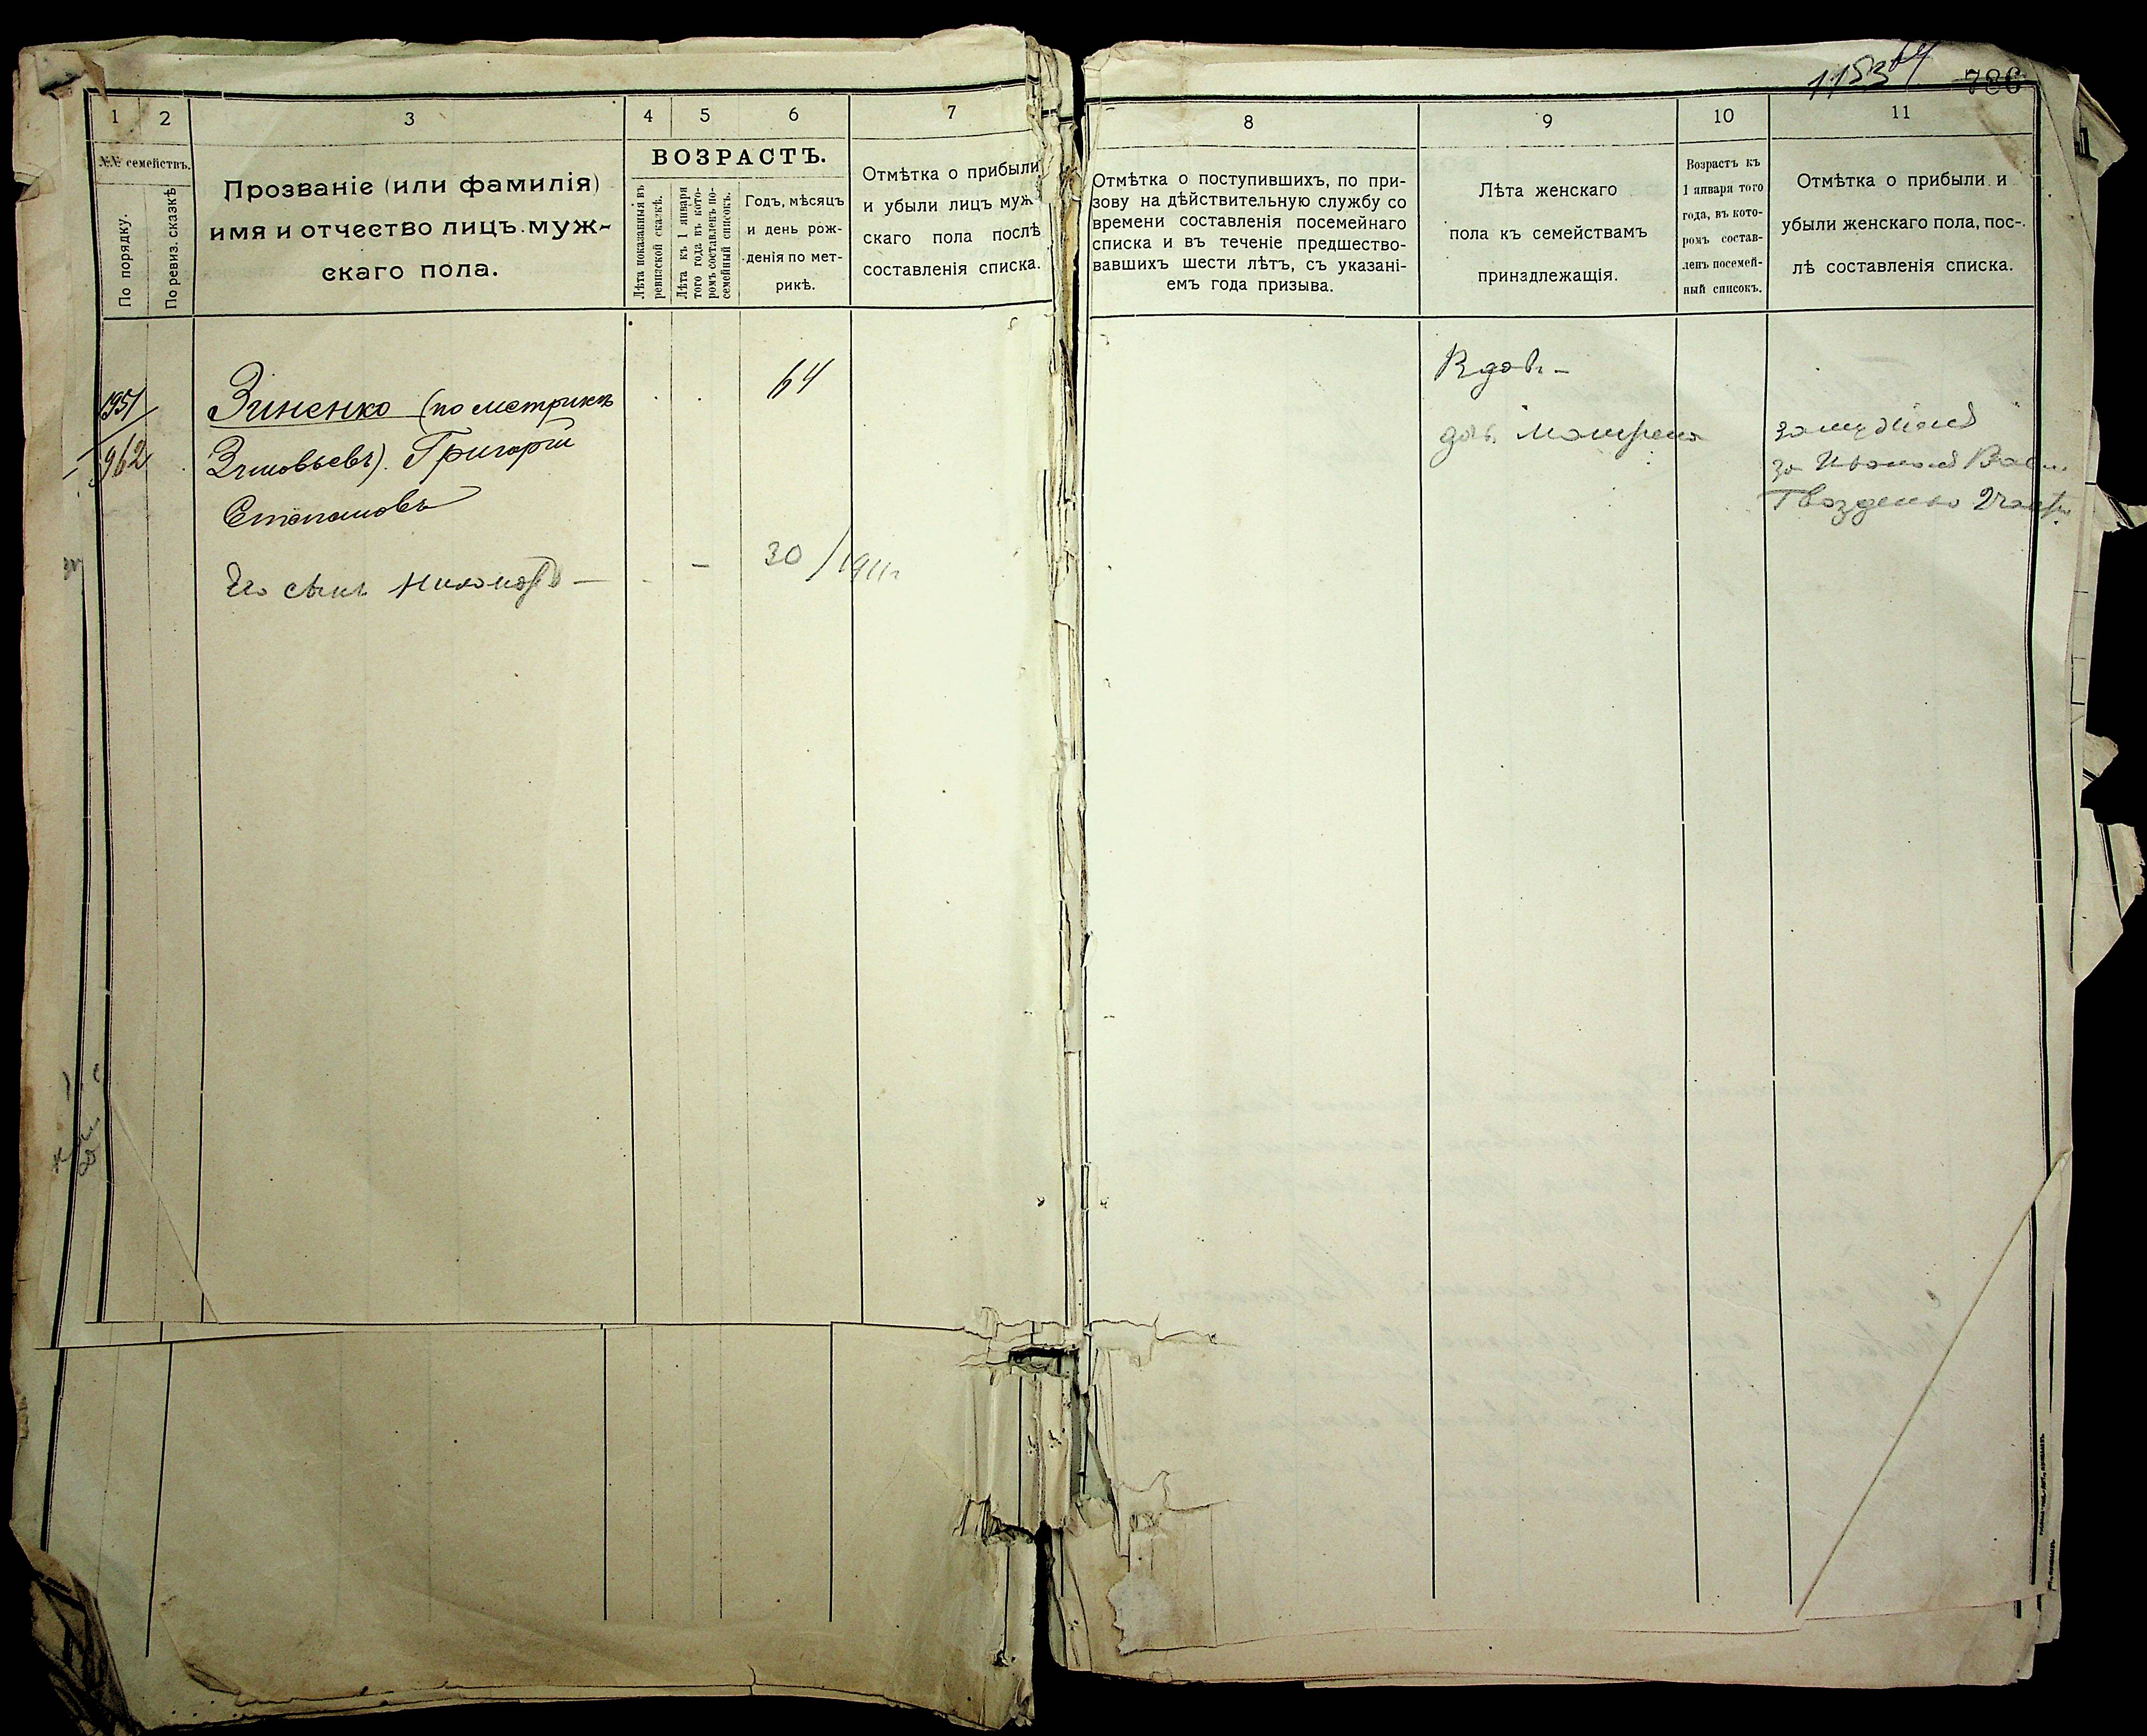 1153 64 786
1 2 3 4 5 6 7
№№ семействъ.
По порядку.
По ревиз. сказкѣ
Прозваніе (или фамилія)
имя и отчество лицъ муж-
скаго пола.
ВОЗРАСТЪ.
Лѣта показанныя въ
ревизской сказкѣ.
Лѣта къ 1 января
того года въ кото-
ромъ составленъ по-
семейный списокъ.
Годъ, мѣсяцъ
и день рож-
денія по мет-
рикѣ.
Отмѣтка о прибыли
и убыли лицъ муж-
скаго пола послѣ
составленія списка.
1951
962
Зиненко (по метрикѣ
Зиновьевъ). Григорій
Степановъ
64
Его сынъ Никаноръ —
30/1911г
8 9 10 11
Отмѣтка о поступившихъ, по при-
зову на дѣйствительную службу со
времени составленія посемейнаго
списка и въ теченіе предшество-
вавшихъ шести лѣтъ, съ указані-
емъ года призыва.
Лѣта женскаго
пола къ семействамъ
принадлежащія.
Возрастъ къ
1 января того
года, въ кото-
ромъ состав-
ленъ посемей-
ный списокъ.
Отмѣтка о прибыли и
убыли женскаго пола, пос-
лѣ составленія списка.
Вдов. –
доч. Матрена
замужемъ
за Иваномъ Васил.
Гвозденко